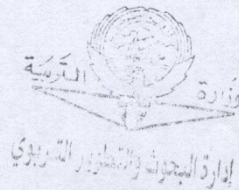 وزارة التربية
إدارة البحوث والتطوير التربوي